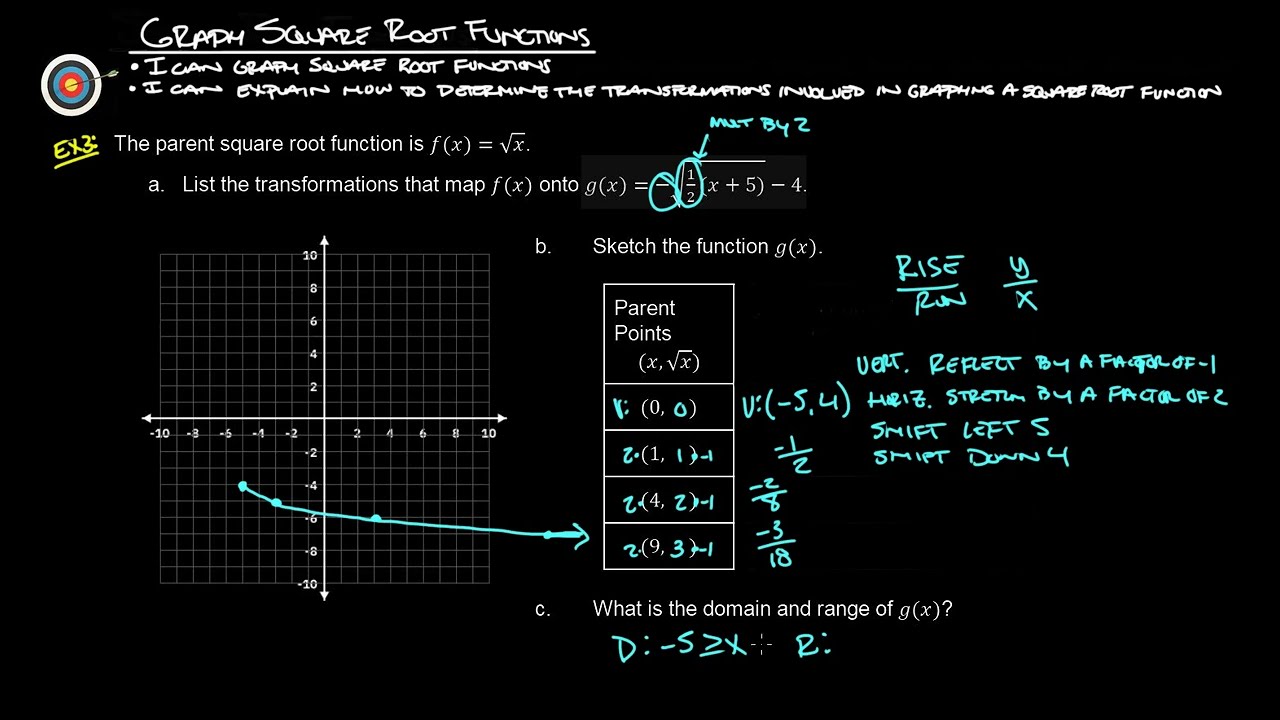 GRAPH SQUARE ROOT FUNCTIONS
• I CAN GRAPH SQUARE ROOT FUNCTIONS
• I CAN EXPLAIN HOW TO DETERMINE THE TRANSFORMATIONS INVOLVED IN GRAPHING A SQUARE ROOT FUNCTION
MULT BY 2
EX3: The parent square root function is f(x) = √x.
a. List the transformations that map f(x) onto g(x) = −√(1/2(x + 5)) − 4.
b. Sketch the function g(x).
RISE/RUN y/x
10
8
6
4
2
-10 -8 -6 -4 -2 2 4 6 8 10
-2
-4
-6
-8
-10
Parent
Points
(x, √x)
V: (0, 0) V:(-5,4)
2·(1, 1)·-1 -1/2
2·(4, 2)·-1 -2/8
2·(9, 3)·-1 -3/18
VERT. REFLECT BY A FACTOR OF -1
HORIZ. STRETCH BY A FACTOR OF 2
SHIFT LEFT 5
SHIFT DOWN 4
c. What is the domain and range of g(x)?
D: -5≥x R: